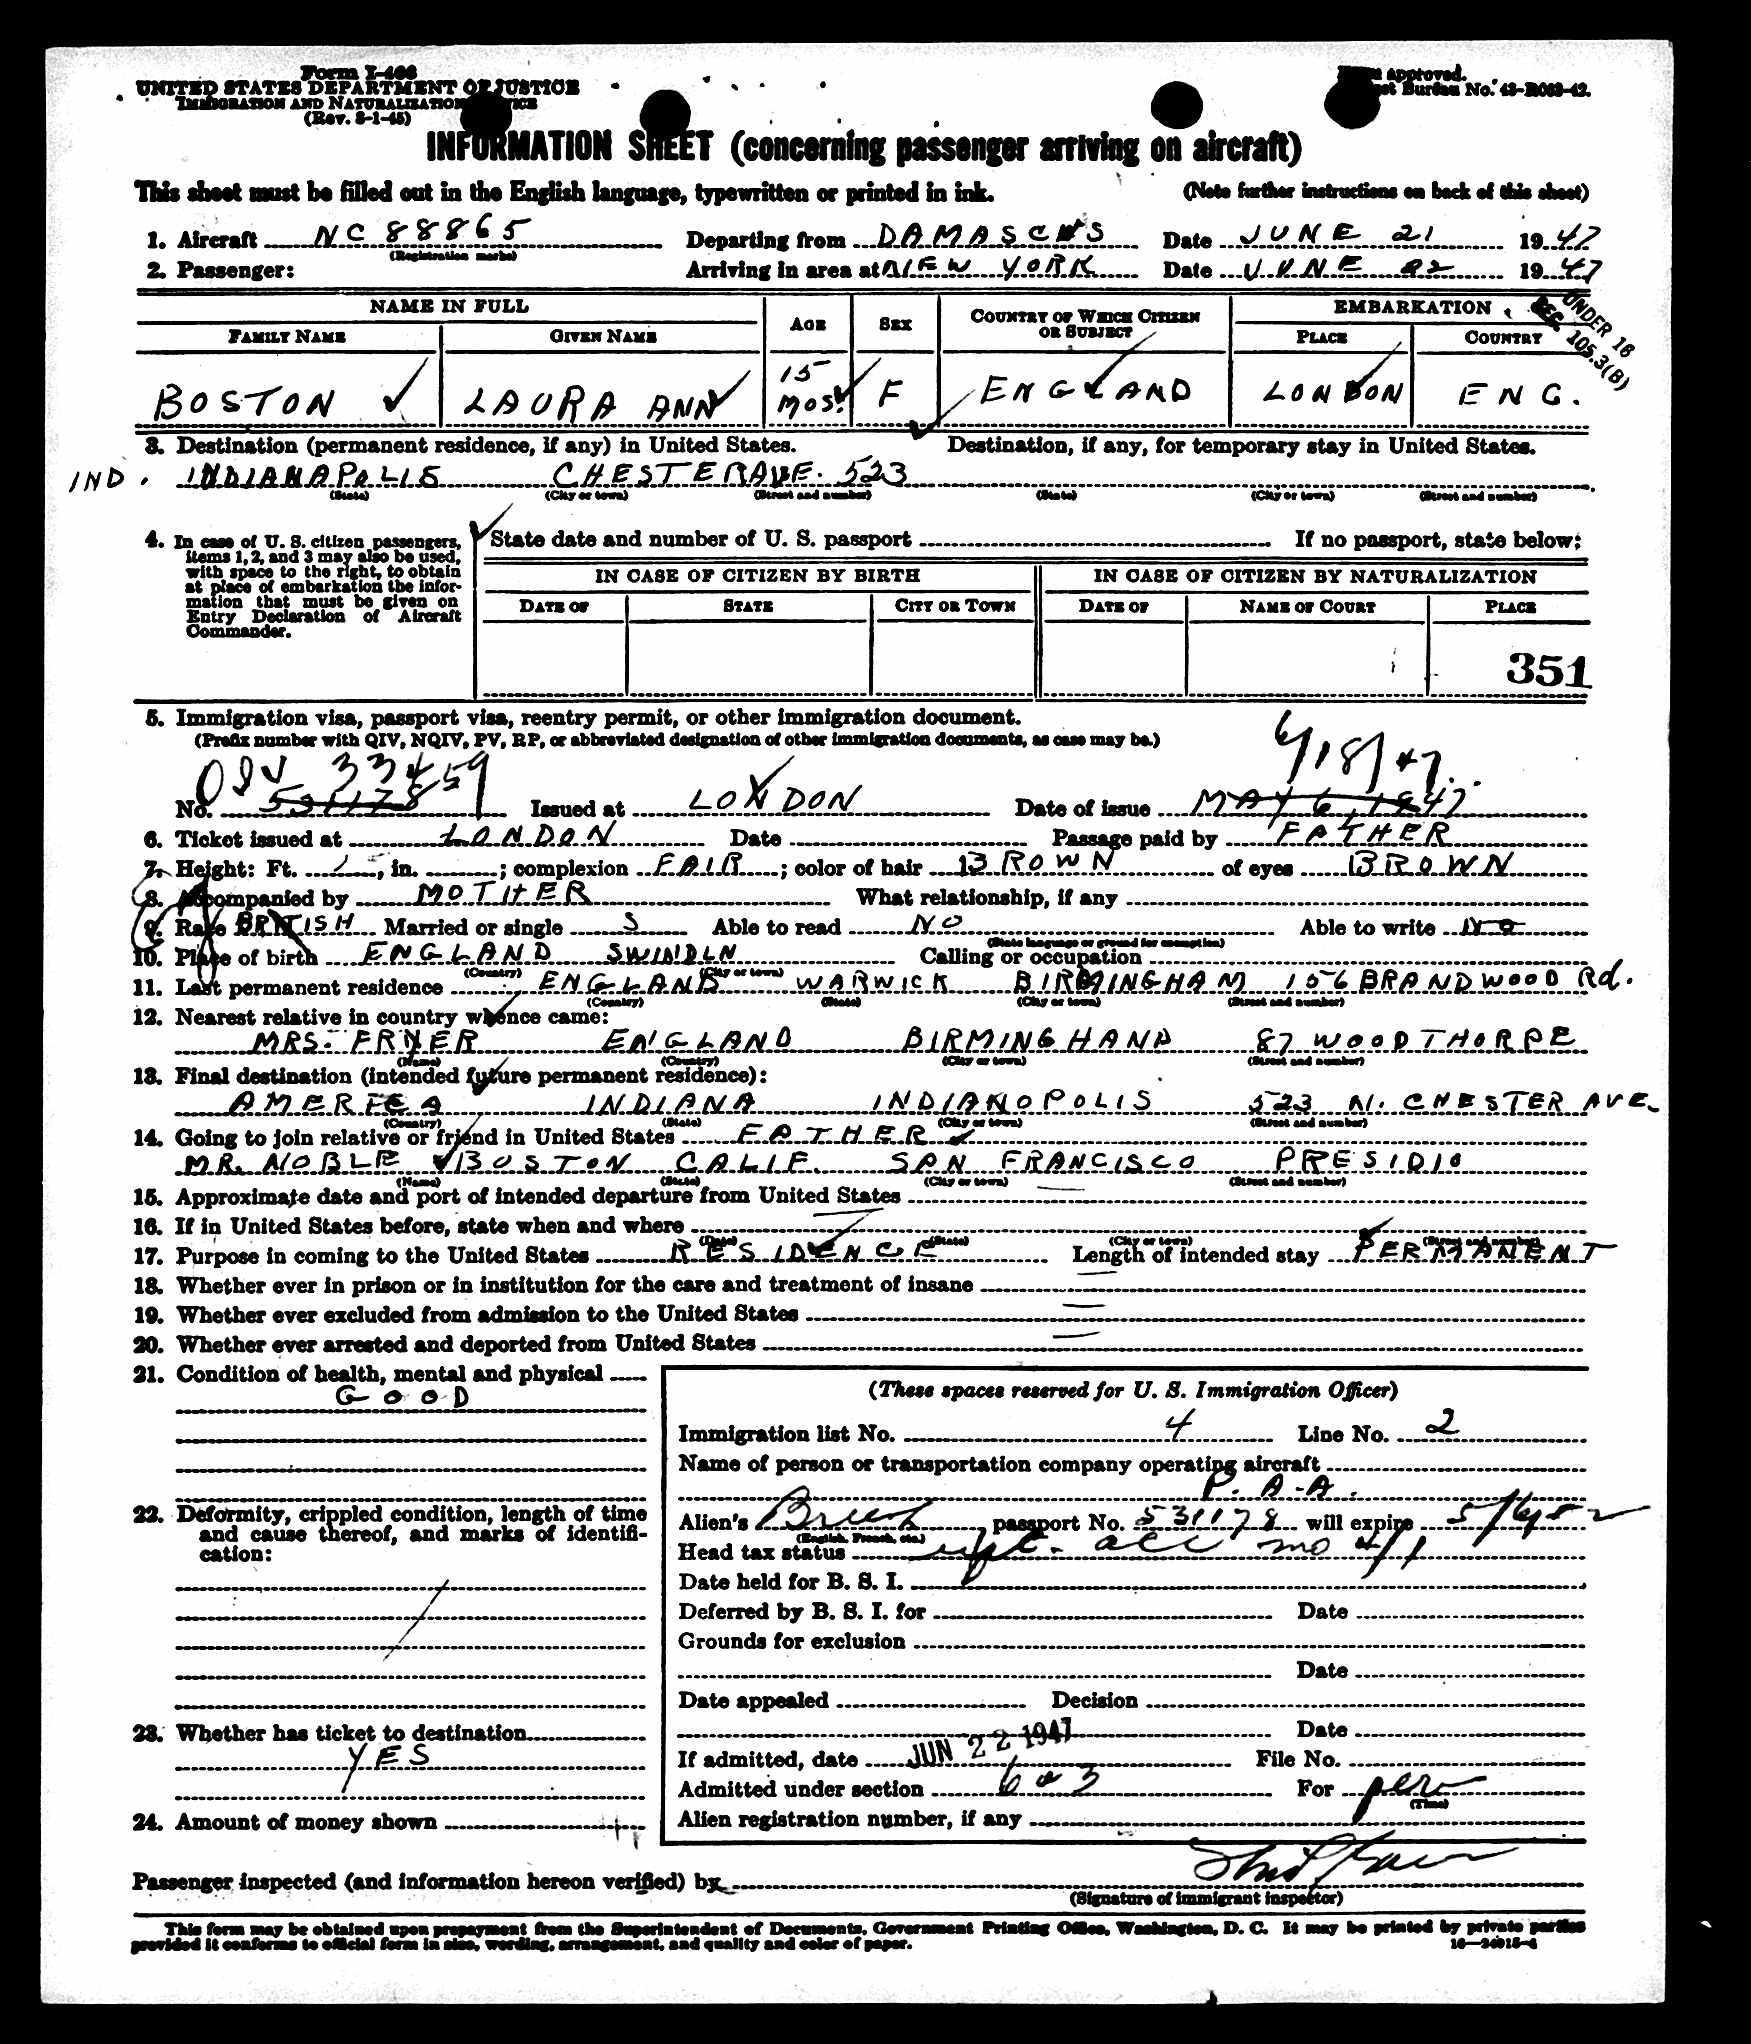 Form I-466
UNITED STATES DEPARTMENT OF JUSTICE
IMMIGRATION AND NATURALIZATION SERVICE
(Rev. 8-1-45)
Form approved.
Budget Bureau No. 43-R063-42.
INFORMATION SHEET (concerning passenger arriving on aircraft)
This sheet must be filled out in the English language, typewritten or printed in ink. (Note further instructions on back of this sheet)
1. Aircraft NC 88865 Departing from DAMASCUS Date JUNE 21 1947
(Registration marks)
2. Passenger: Arriving in area at NEW YORK Date JUNE 22 1947
UNDER 16
SEC. 105.3(B)
NAME IN FULL AGE SEX COUNTRY OF WHICH CITIZEN OR SUBJECT EMBARKATION
FAMILY NAME GIVEN NAME PLACE COUNTRY
BOSTON LAURA ANN 15 MOS. F ENGLAND LONDON ENG.
3. Destination (permanent residence, if any) in United States. Destination, if any, for temporary stay in United States.
IND. INDIANAPOLIS CHESTER AVE. 523
(State) (City or town) (Street and number) (State) (City or town) (Street and number)
4. In case of U. S. citizen passengers, items 1, 2, and 3 may also be used, with space to the right, to obtain at place of embarkation the information that must be given on Entry Declaration of Aircraft Commander.
State date and number of U. S. passport If no passport, state below:
IN CASE OF CITIZEN BY BIRTH IN CASE OF CITIZEN BY NATURALIZATION
DATE OF STATE CITY OR TOWN DATE OF NAME OF COURT PLACE
351
5. Immigration visa, passport visa, reentry permit, or other immigration document.
(Prefix number with QIV, NQIV, PV, RP, or abbreviated designation of other immigration documents, as case may be.)
33459 6/18/47.
No. 531178 Issued at LONDON Date of issue MAY 6, 1947
6. Ticket issued at LONDON Date Passage paid by FATHER
7. Height: Ft. , in. ; complexion FAIR ; color of hair BROWN of eyes BROWN
8. Accompanied by MOTHER What relationship, if any
9. Race BRITISH Married or single S Able to read NO Able to write NO
(State language or ground for exemption)
10. Place of birth ENGLAND SWINDLN Calling or occupation
(Country) (City or town)
11. Last permanent residence ENGLAND WARWICK BIRMINGHAM 156 BRANDWOOD Rd.
(Country) (State) (City or town) (Street and number)
12. Nearest relative in country whence came:
MRS. FRYER ENGLAND BIRMINGHAND 87 WOODTHORPE
(Name) (Country) (City or town) (Street and number)
13. Final destination (intended future permanent residence):
AMERICA INDIANA INDIANOPOLIS 523 N. CHESTER AVE.
(Country) (State) (City or town) (Street and number)
14. Going to join relative or friend in United States FATHER
MR. NOBLE BOSTON CALIF. SAN FRANCISCO PRESIDIO
(Name) (State) (City or town) (Street and number)
15. Approximate date and port of intended departure from United States
16. If in United States before, state when and where
(Date) (State) (City or town) (Street and number)
17. Purpose in coming to the United States RESIDENCE Length of intended stay PERMANENT
18. Whether ever in prison or in institution for the care and treatment of insane
19. Whether ever excluded from admission to the United States
20. Whether ever arrested and deported from United States
21. Condition of health, mental and physical
GOOD
22. Deformity, crippled condition, length of time and cause thereof, and marks of identification:
23. Whether has ticket to destination
YES
24. Amount of money shown
(These spaces reserved for U. S. Immigration Officer)
Immigration list No. 4 Line No. 2
Name of person or transportation company operating aircraft
P. A. A.
Alien's passport No. 531178 will expire 5/6/52
(English, French, etc.)
Head tax status acc mo 4/1
Date held for B. S. I.
Deferred by B. S. I. for Date
Grounds for exclusion
Date
Date appealed Decision
Date
If admitted, date JUN 22 1947 File No.
Admitted under section 6 a 3 For per
(Time)
Alien registration number, if any
Passenger inspected (and information hereon verified) by
(Signature of immigrant inspector)
This form may be obtained upon prepayment from the Superintendent of Documents, Government Printing Office, Washington, D. C. It may be printed by private parties
provided it conforms to official form in size, wording, arrangement, and quality and color of paper. 16—24915-4